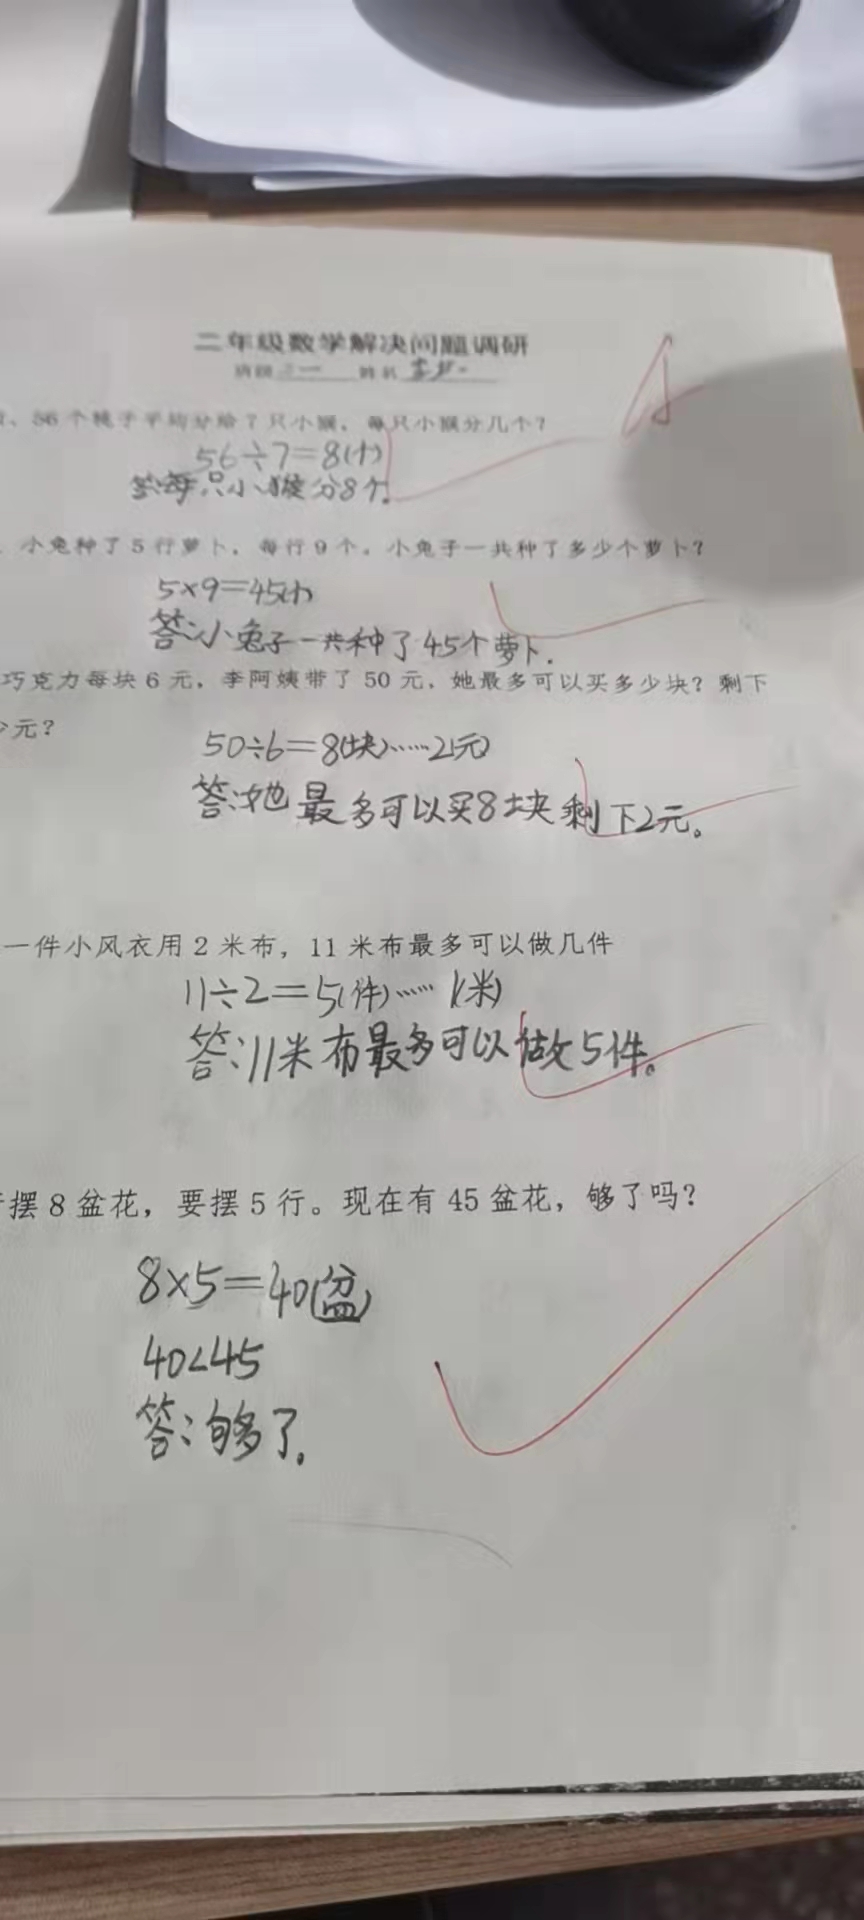 二年级数学解决问题调研
班级 二一 姓名
、56个桃子平均分给7只小猴,每只小猴分几个?
56÷7=8(个)
答:每只小猴分8个.
小兔种了5行萝卜,每行9个。小兔子一共种了多少个萝卜?
5×9=45(个)
答:小兔子一共种了45个萝卜.
巧克力每块6元,李阿姨带了50元,她最多可以买多少块?剩下
少元?
50÷6=8(块)……2(元)
答:她最多可以买8块剩下2元。
一件小风衣用2米布,11米布最多可以做几件
11÷2=5(件)……1(米)
答:11米布最多可以做5件。
摆8盆花,要摆5行。现在有45盆花,够了吗?
8×5=40(盆)
40<45
答:够了.